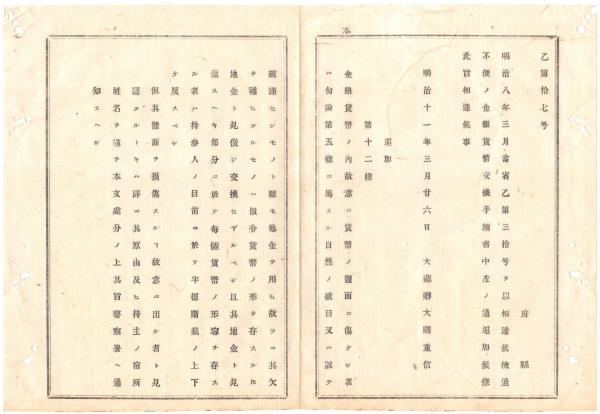 乙第拾七号
府縣
明治八年三月當省乙第三拾号ヲ以相達候流通
不便ノ金銀貨幣交換手續書中左ノ通追加候條
此旨相達候事
明治十一年三月廿六日　大藏卿大隈重信
追加
第十二條
金銀貨幣ノ內故意ニ貨幣ノ體面ニ傷ケシ者
ハ勿論第五條ニ屬スル自然ノ破目又ハ誤テ
本
破潰セシモノト雖モ他金ヲ用ヒ故ラニ其欠
ヲ補ヒタルモノハ假令貨幣ノ形ヲ存スルモ
地金ト見做シ交換セザルベシ且其地金ト見
做スヘキ部分ニ於テ每個貨幣ノ形容ヲ存ス
ル者ハ持參人ノ目前ニ於テ半個斷截ノ上下
ケ戾スベシ
但其體面ヲ損傷スル丁故意ニ出ル者ト見
認ヨルトキハ詳ニ其原由及ヒ持主ノ宿所
姓名ヲ尋子本文處分ノ上其旨警察署ヘ通
知スヘシ